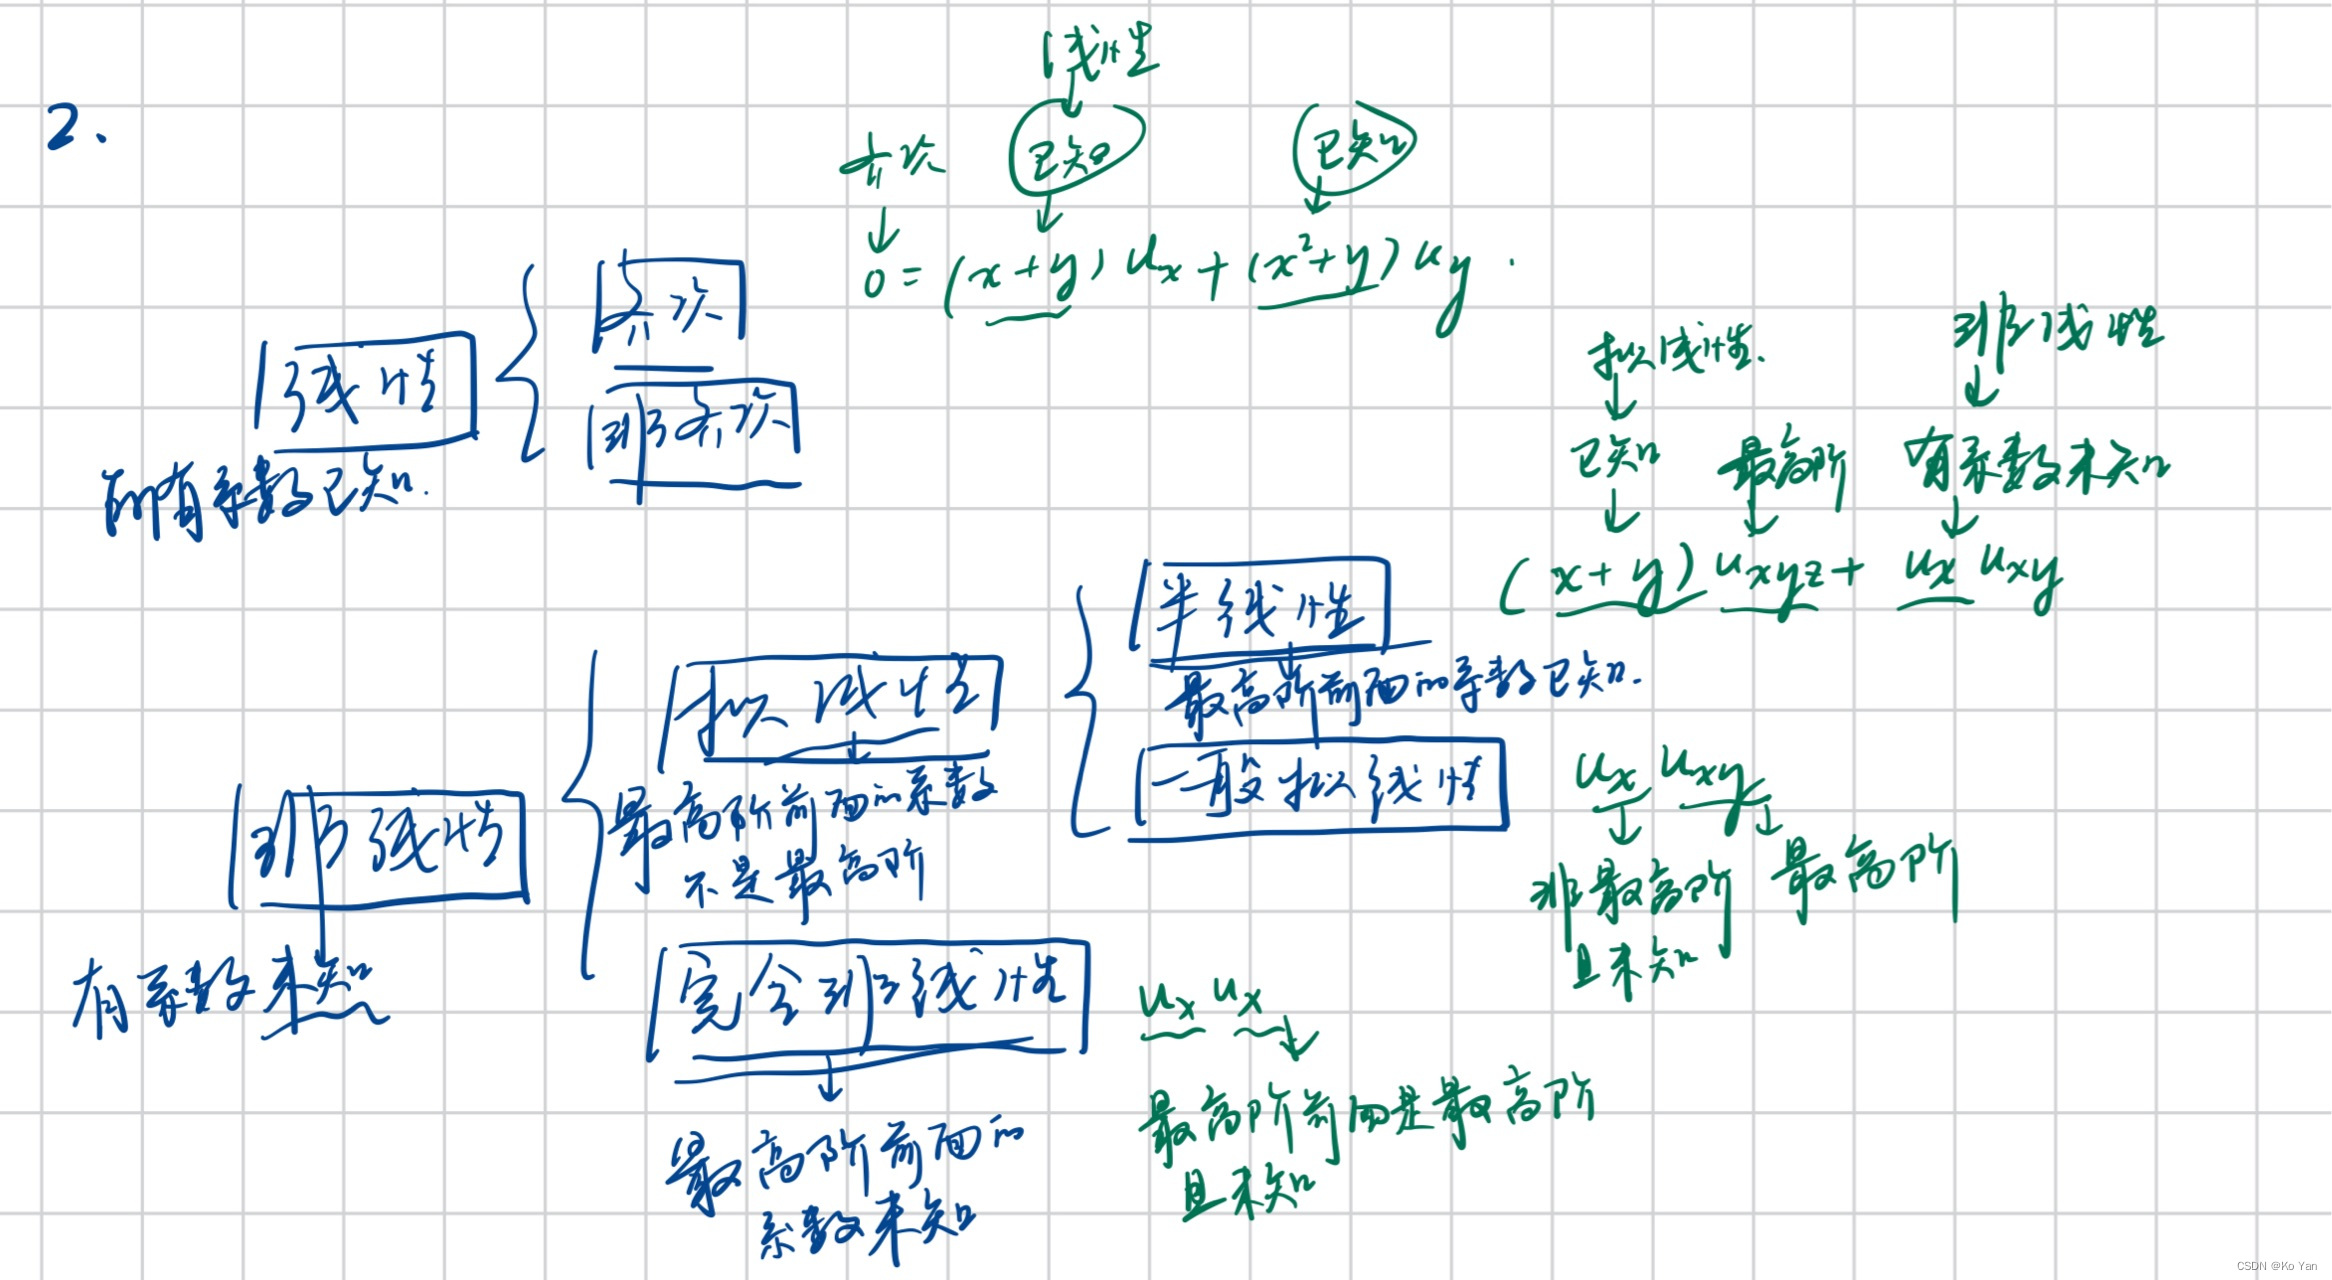 2、
线性
齐次
已知
已知
0 = (x+y) uₓ + (x²+y) u_y .
线性
齐次
非齐次
所有系数已知.
拟线性.
非线性
已知
最高阶
有系数未知
(x+y) u_xyz + uₓ u_xy
非线性
有系数未知
拟线性
最高阶前面的系数
不是最高阶
半线性
最高阶前面的系数已知.
一般拟线性
uₓ u_xy
非最高阶
且未知
最高阶
完全非线性
最高阶前面的
系数未知
uₓ uₓ
最高阶前面是最高阶
且未知
CSDN @Ko Yan